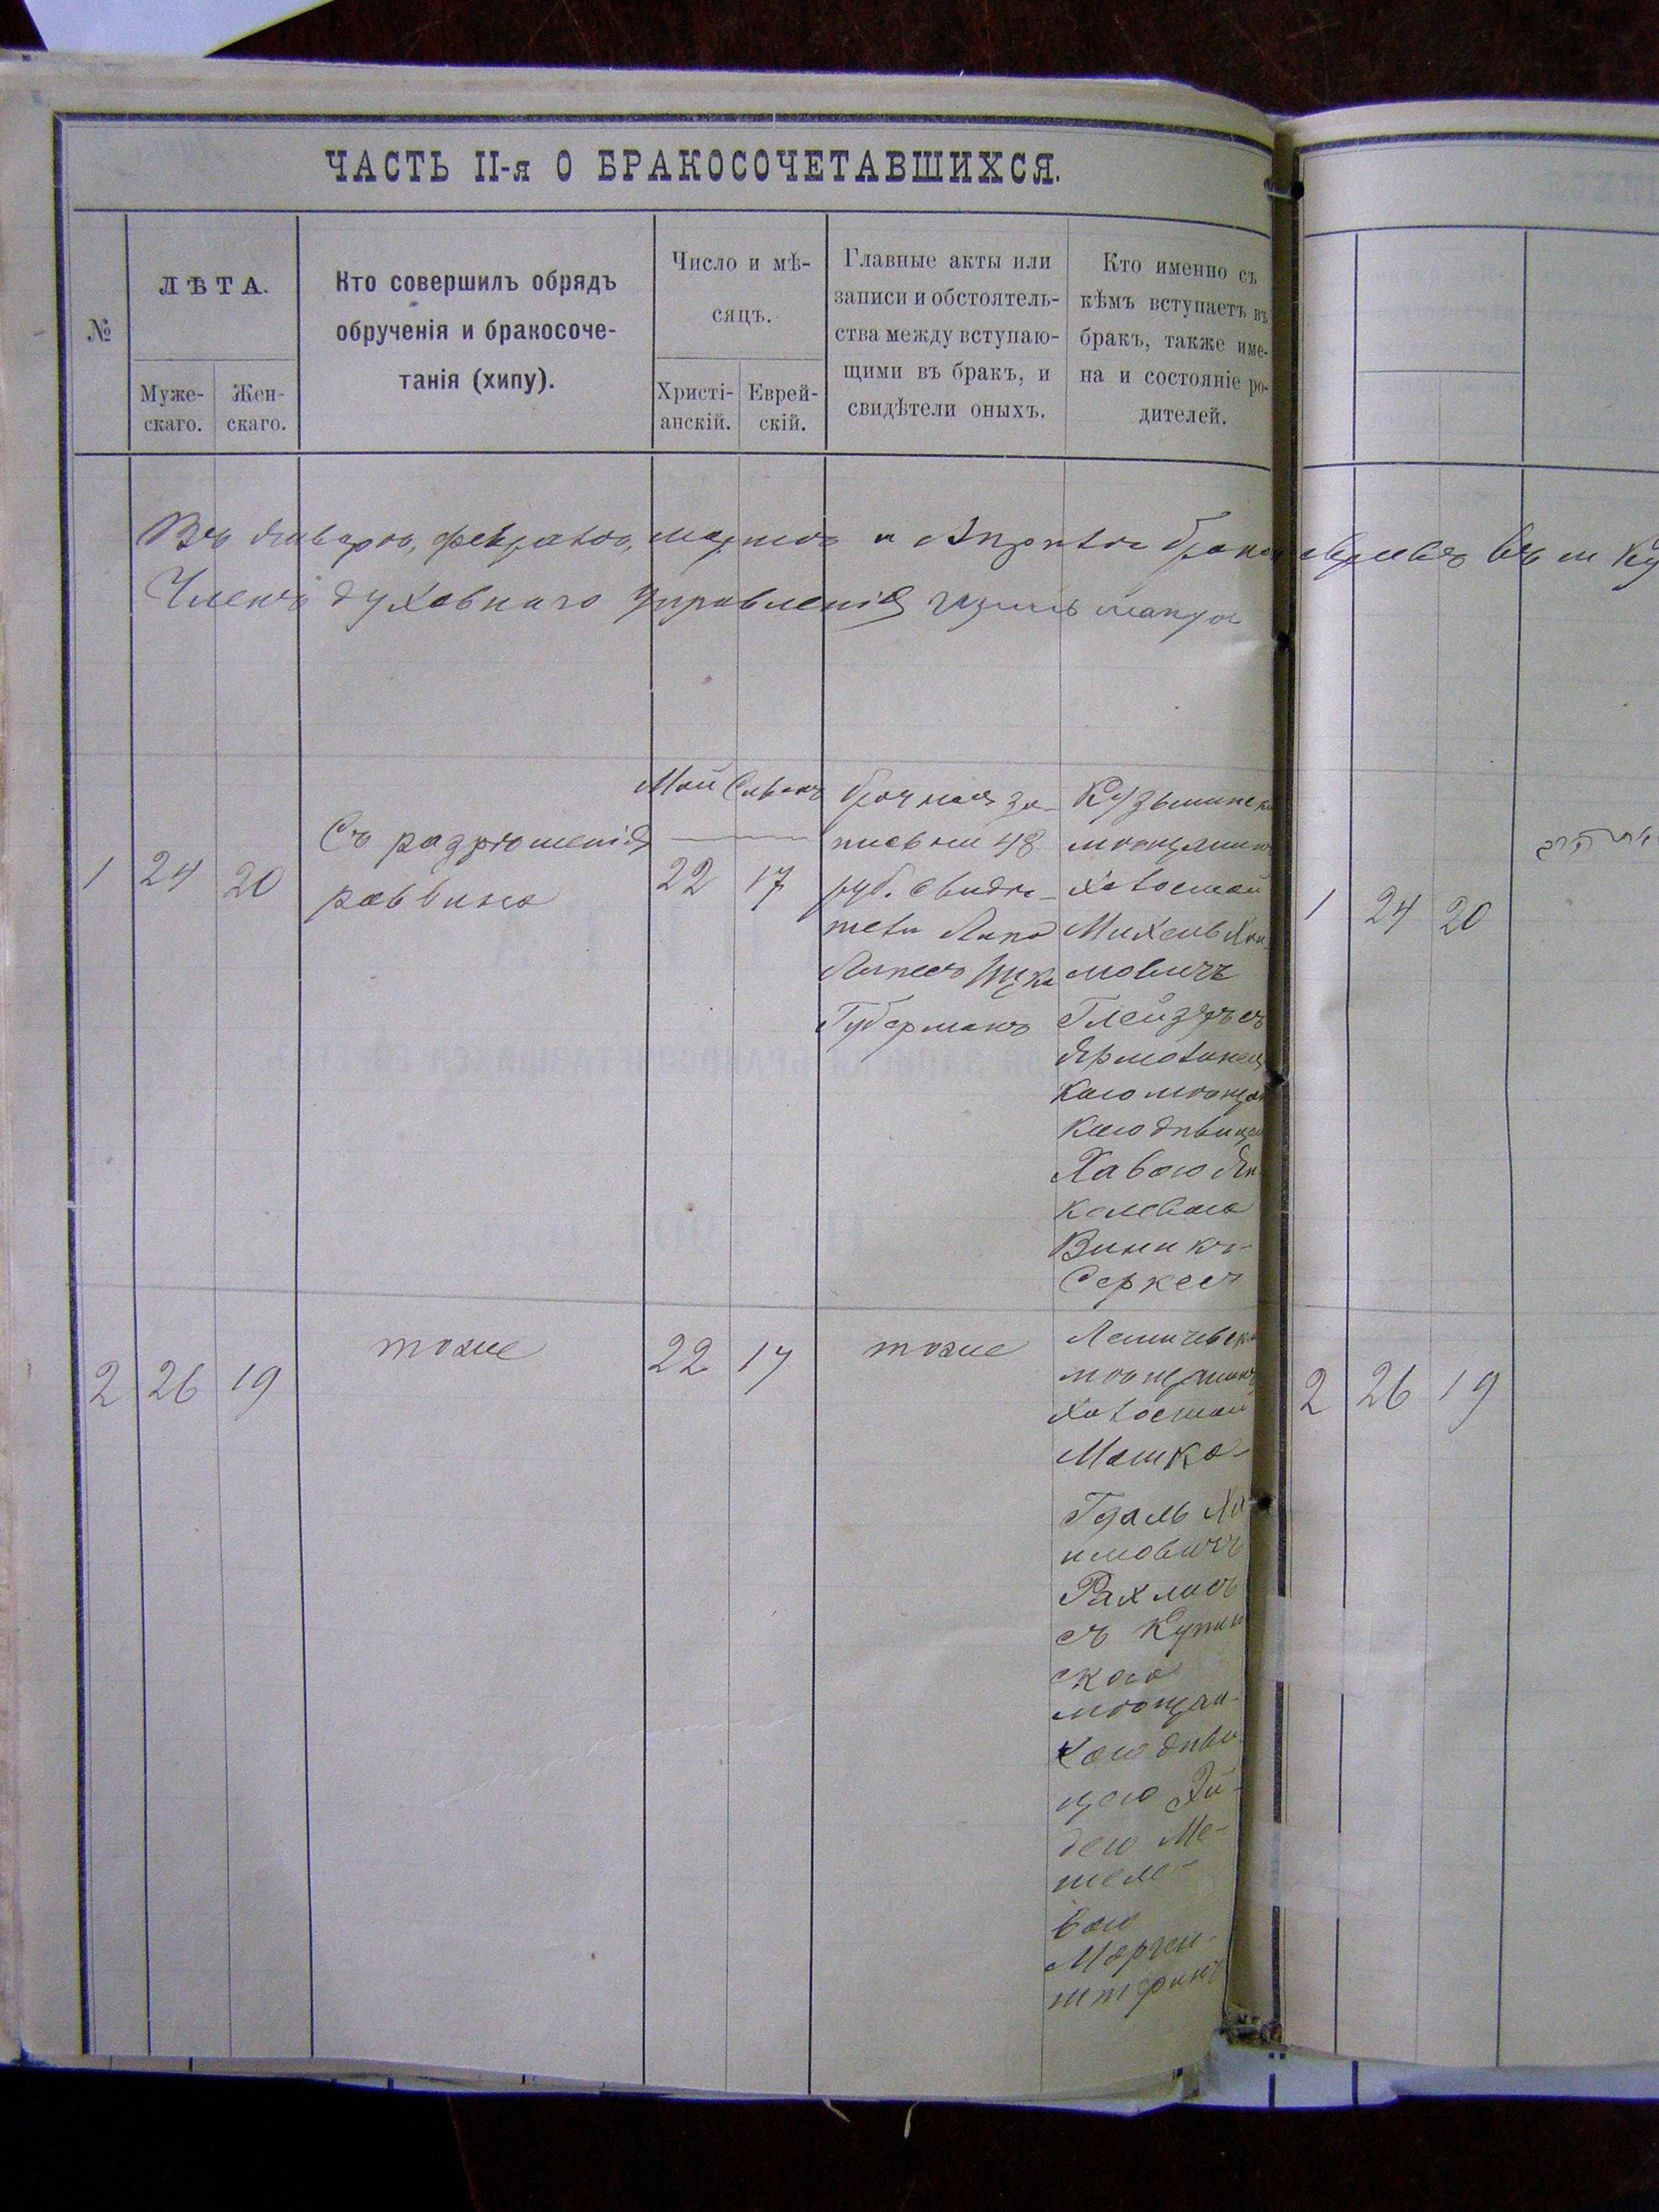 ЧАСТЬ II-я О БРАКОСОЧЕТАВШИХСЯ.
№
ЛѢТА.
Муже-
скаго.
Жен-
скаго.
Кто совершилъ обрядъ
обрученія и бракосоче-
танія (хипу).
Число и мѣ-
сяцъ.
Христі-
анскій.
Еврей-
скій.
Главные акты или
записи и обстоятель-
ства между вступаю-
щими въ бракъ, и
свидѣтели оныхъ.
Кто именно съ
кѣмъ вступаетъ въ
бракъ, также име-
на и состояніе ро-
дителей.
Въ январѣ, февралѣ, мартѣ и Апрѣлѣ
Членъ духовнаго управленія
1
24
20
Съ разрѣшенія
раввина
Май
22
Сиванъ
17
брачная за-
пись на 48
руб. свидѣ-
тели
Губерманъ
Кузьминск
мѣщанинъ
холостой
Михель Хаи
мовичъ
Глейзеръ съ
Ярмолинец
кою мѣщан
кою дѣвицею
Хавою Ян
келевою
Виникъ-
Серкесъ
2
26
19
тоже
22
17
тоже
Летичевск
мѣщанинъ
холостой
Мошко-
Гдаль Ха
имовичъ
Рахлисъ
съ Купин
скою
мѣщан-
кою дѣви
цею Эй-
дею Ме-
шеле-
вою
Морген-
штернъ
1
24
20
2
26
19